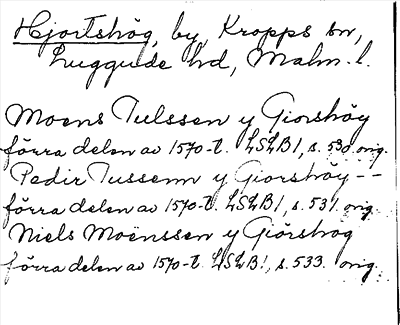 Hjortshög, by, Kropps sn,
Luggude hd, Malm. l.
Moens Tulssen y Giorshöy
förra delen av 1570-t. LSLB1, s. 530 orig.
Pedir Tussenn y Giorshöy --
förra delen av 1570-t. LSLB1, s. 531 orig.
Niels Moënssen y Giörshog
förra delen av 1570-t. LSLB1, s. 533. orig.